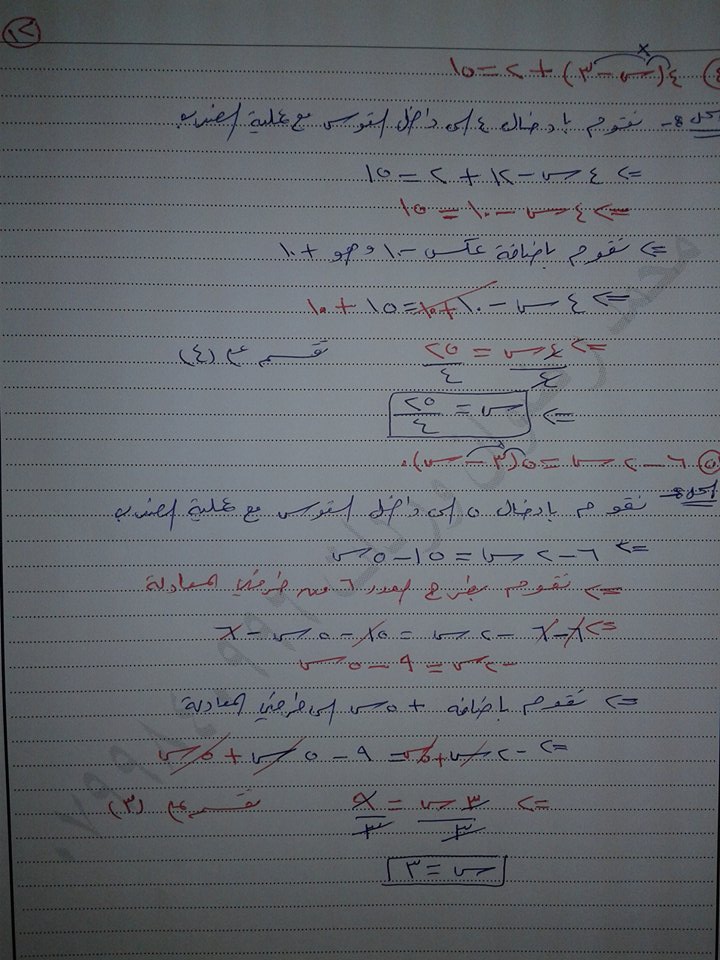 ١٢
٤) ٤(س-٣) + ٢ = ١٥
الحل:- نقوم بادخال ٤ الى داخل القوس مع عملية الضرب
=> ٤س - ١٢ + ٢ = ١٥
=> ٤س - ١٠ = ١٥
=> نقوم باضافة عكس -١٠ وهو +١٠
=> ٤س - ١٠ + ١٠ = ١٥ + ١٠
=> ٤س/٤ = ٢٥/٤ نقسم ع (٤)
=> س = ٢٥/٤
٥) ٦ - ٢س = ٥(٣ - س).
الحل:- نقوم بادخال ٥ الى داخل القوس مع عملية الضرب
=> ٦ - ٢س = ١٥ - ٥س
=> نقوم بطرح العدد ٦ من طرفي المعادلة
=> ٦ - ٦ - ٢س = ١٥ - ٥س - ٦
-٢س = ٩ - ٥س
=> نقوم باضافه + ٥س الى طرفي المعادلة
=> -٢س + ٥س = ٩ - ٥س + ٥س
=> ٣س/٣ = ٩/٣ نقسم ع (٣)
س = ٣